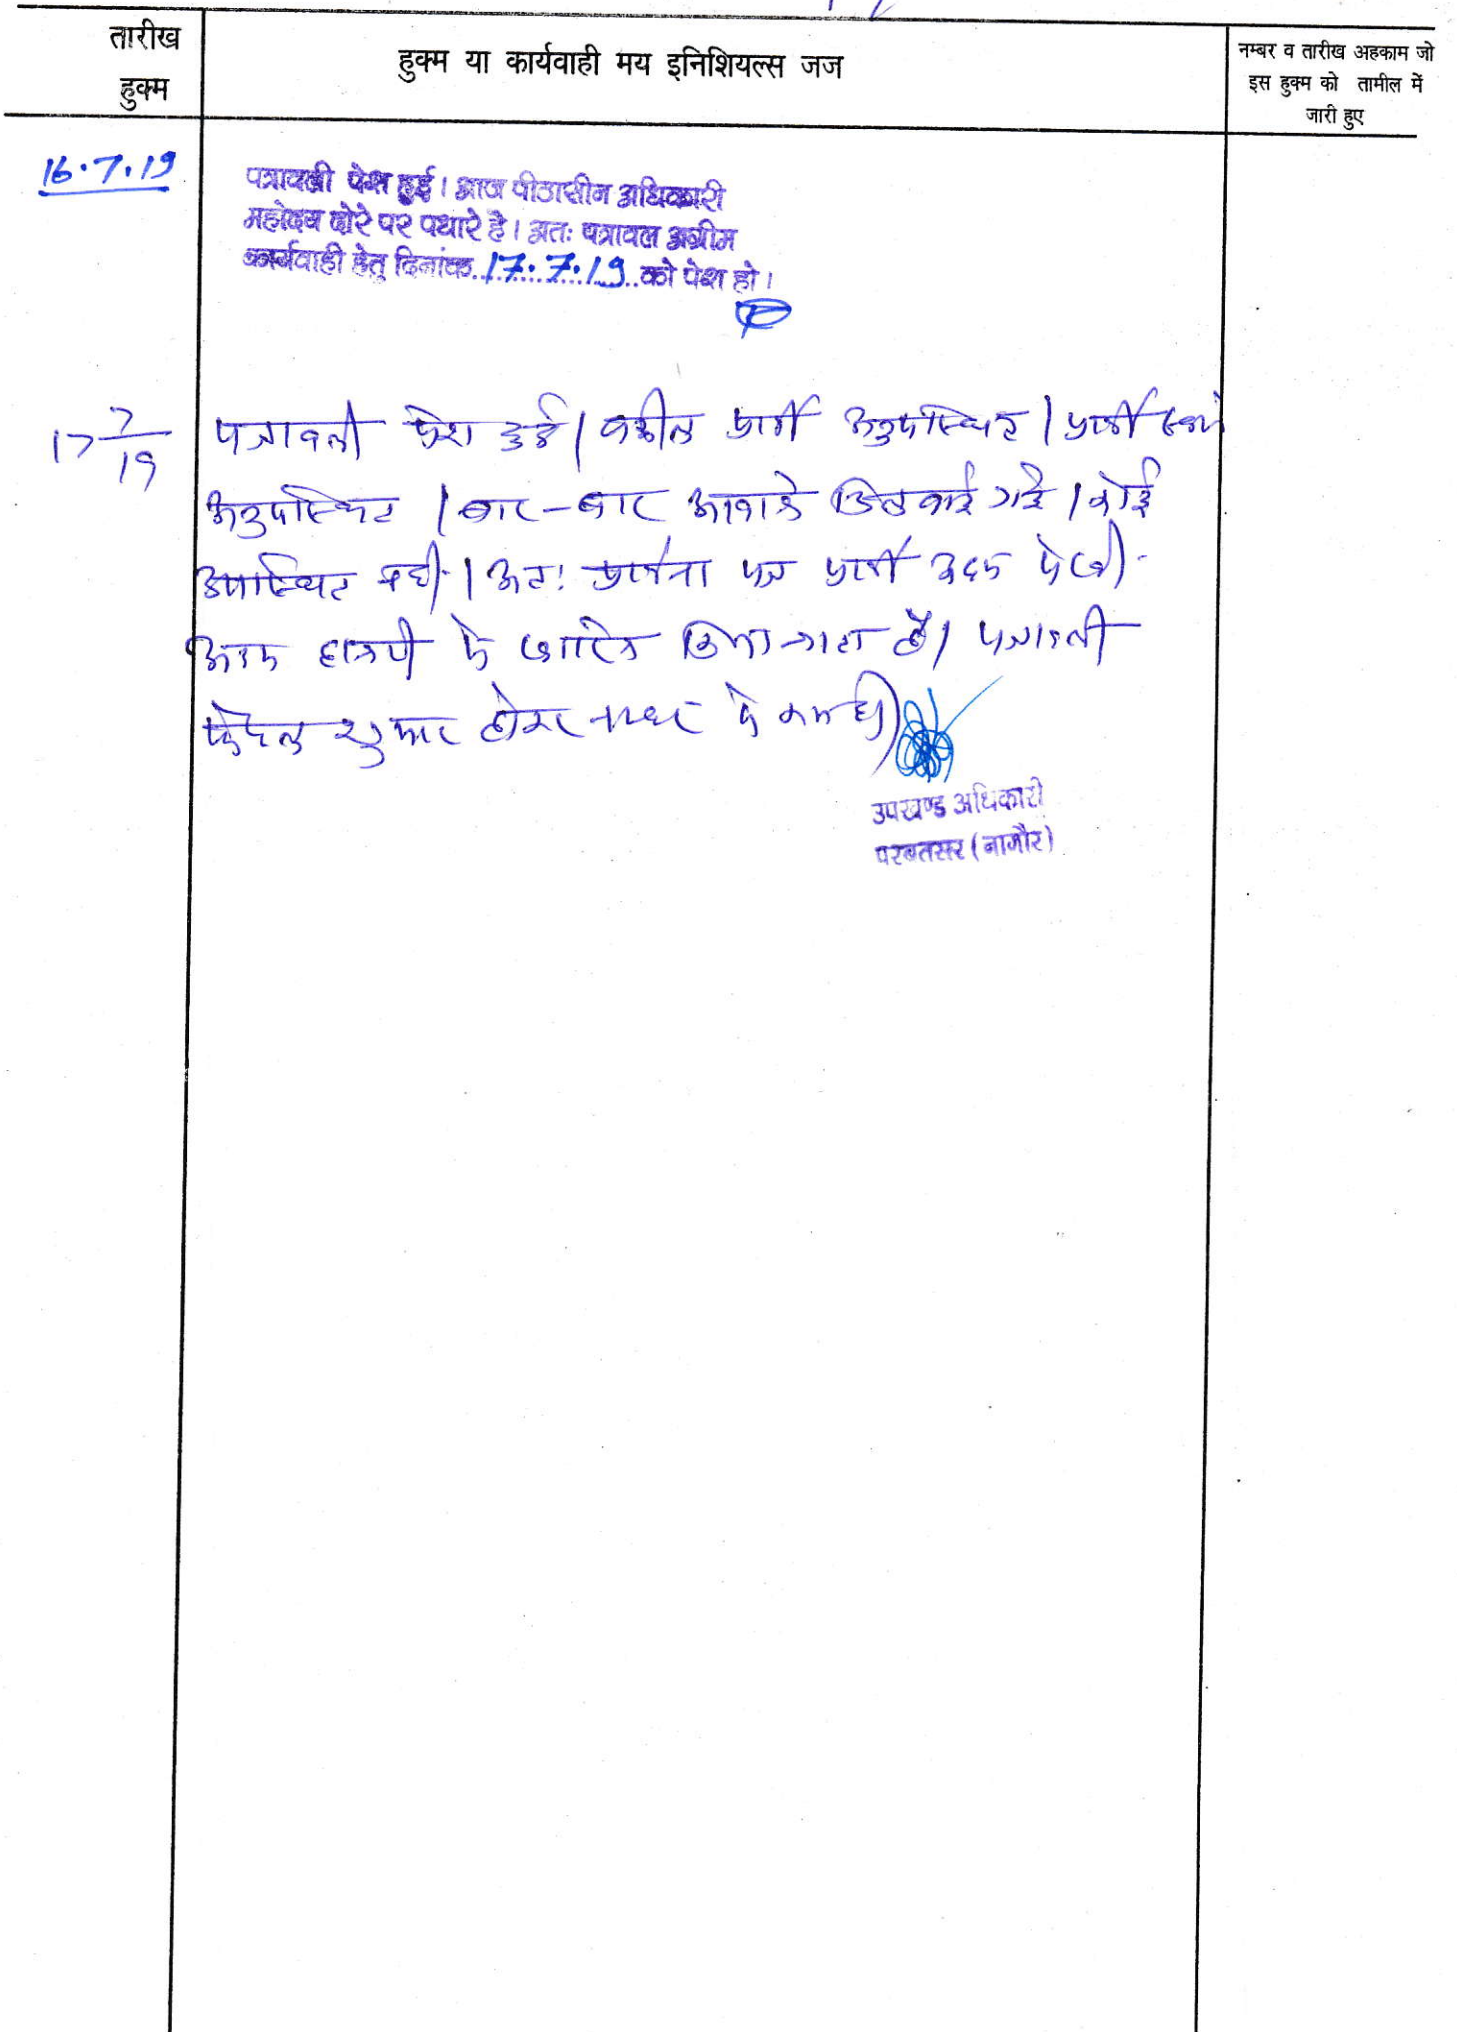 तारीख
हुक्म
हुक्म या कार्यवाही मय इनिशियल्स जज
नम्बर व तारीख अहकाम जो
इस हुक्म को तामील में
जारी हुए
16.7.19
पत्रावली पेश हुई। आज पीठासीन अधिकारी
महोदय दोरे पर पधारे है। अतः पत्रावल अग्रीम
कार्यवाही हेतु दिनांक 17.7.19 को पेश हो।
17 7/19
पत्रावली पेश हुई। वकील प्रार्थी अनुपस्थित। प्रार्थी स्वयं
अनुपस्थित। बार-बार आवाजे दिलवाई गई। कोई
उपस्थित नही। अतः प्रार्थना पत्र प्रार्थी अदम पेरवी
अदम हाजरी में खारिज किया जाता है। पत्रावली
फैसल शुमार होकर नम्बर से कम हो।
उपखण्ड अधिकारी
परबतसर (नागौर)